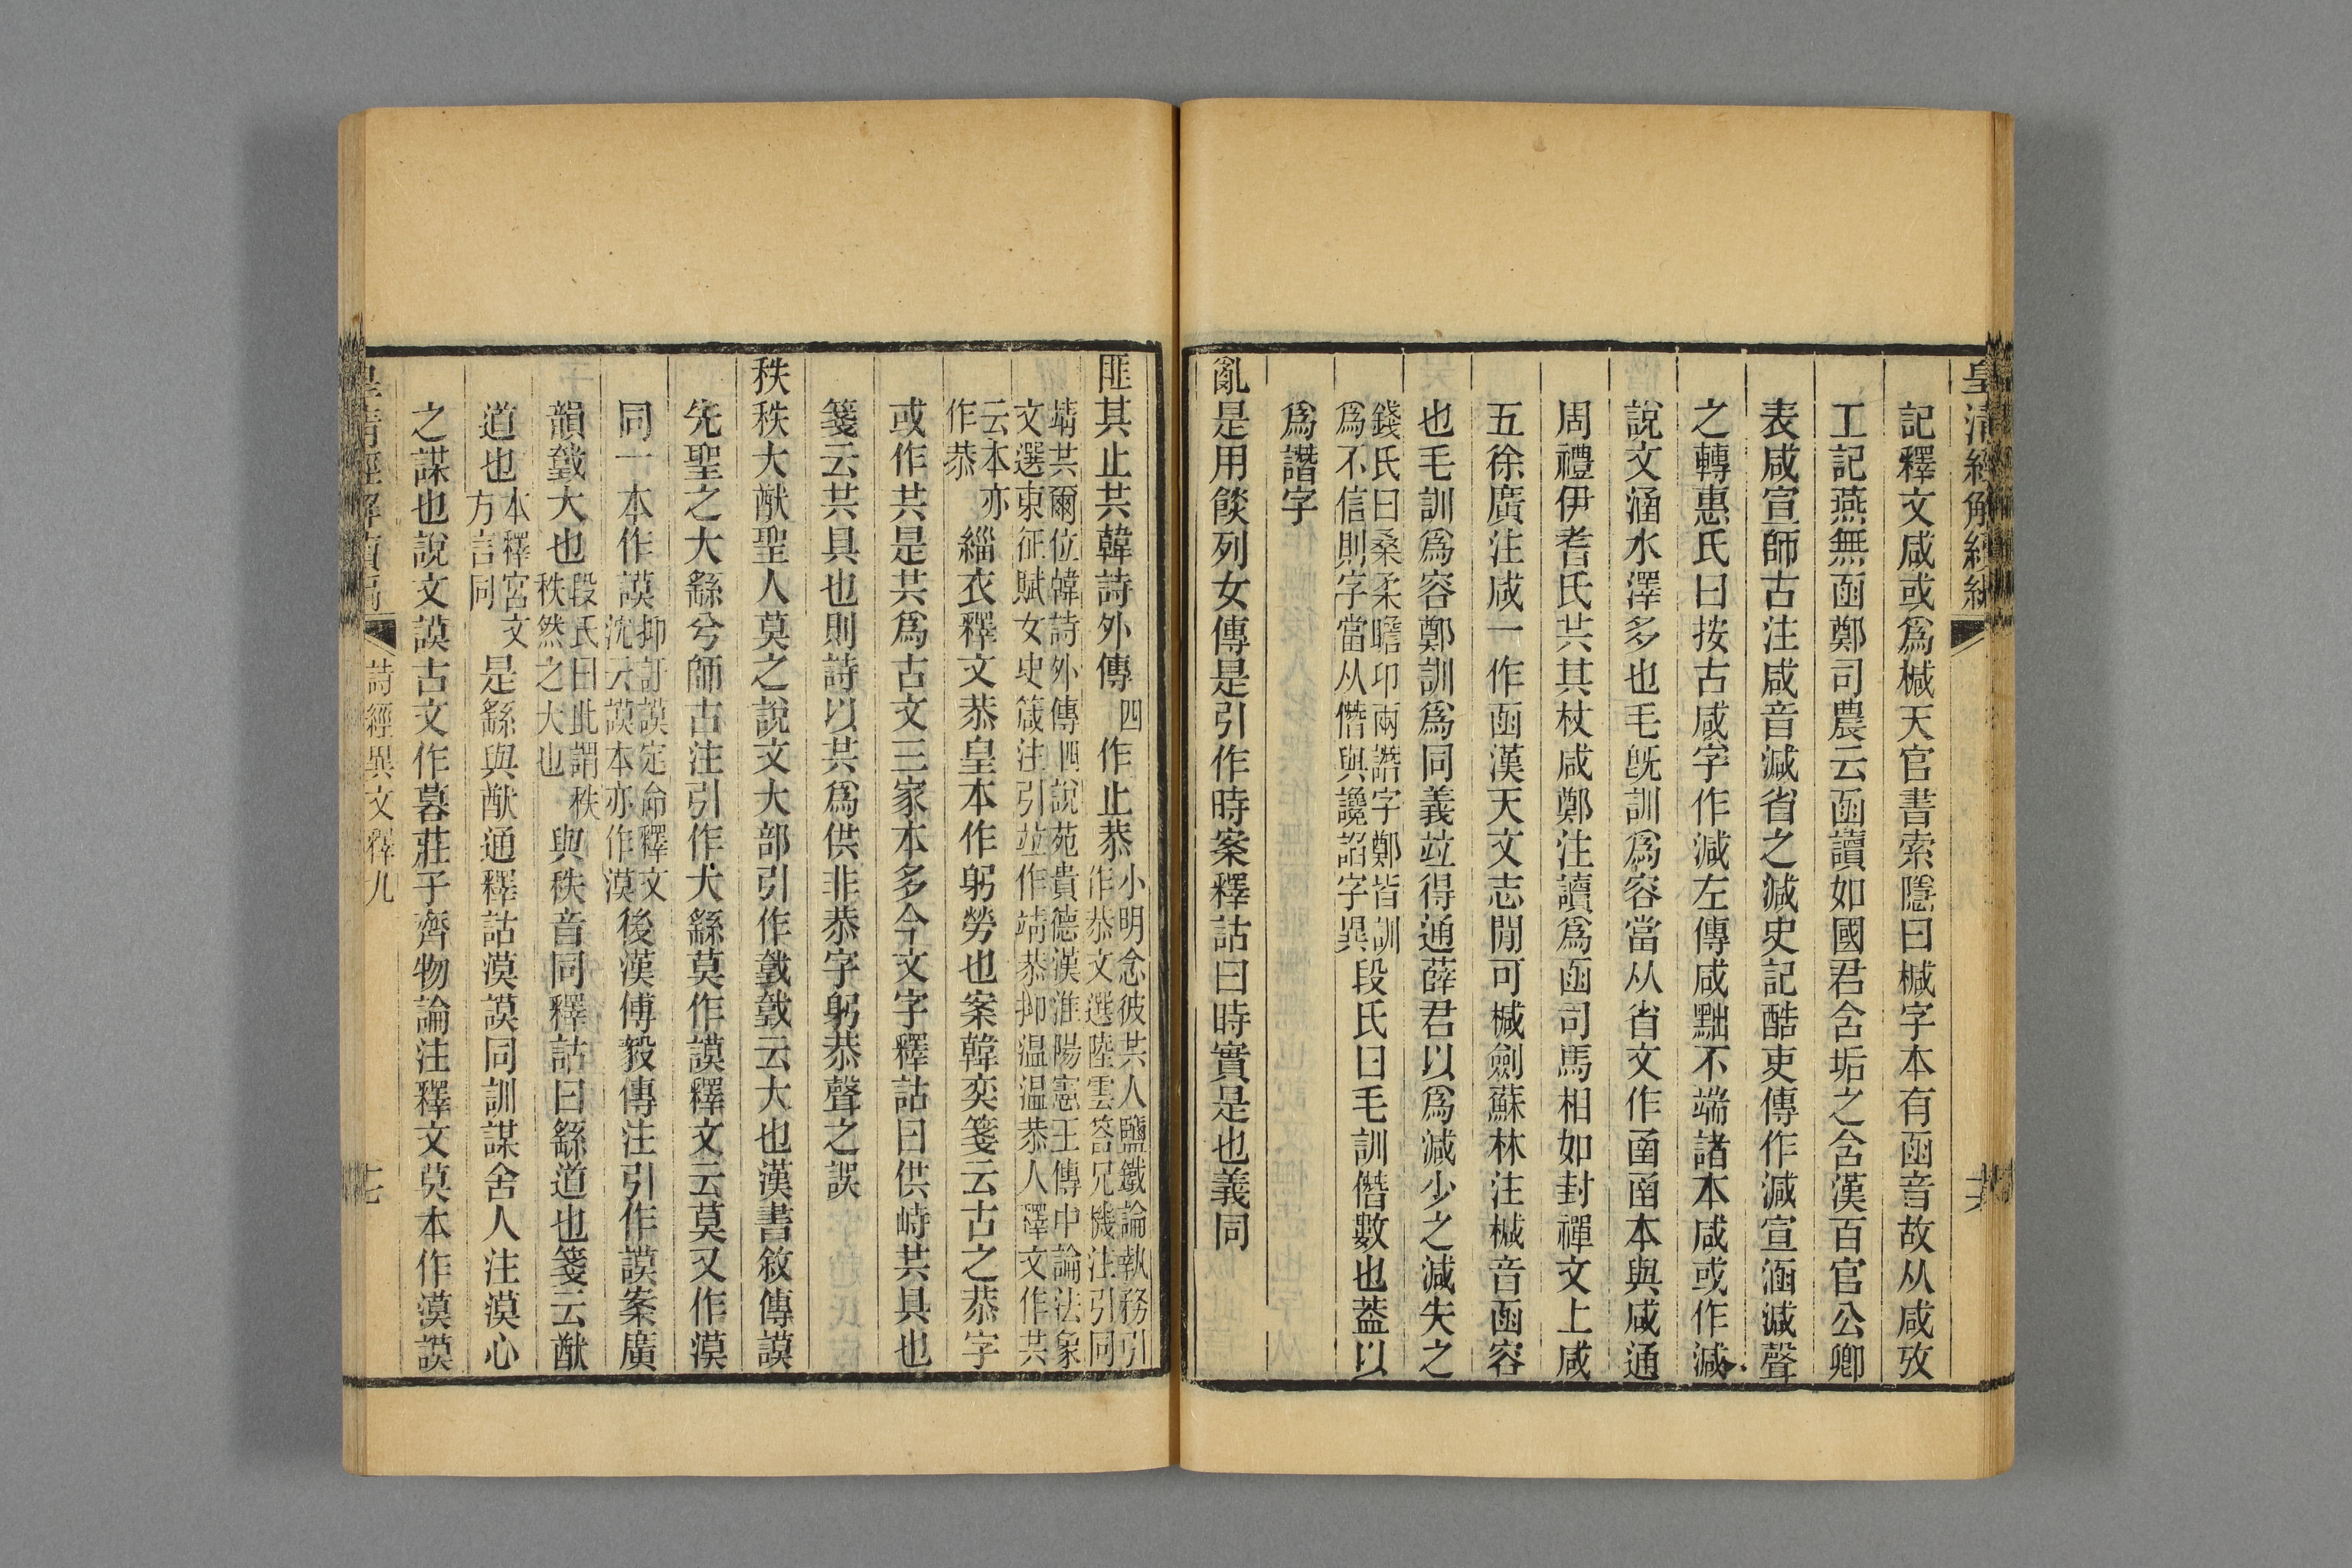 皇清經解續編
記釋文咸或爲椷天官書索隱曰椷字本有函音故从咸攷
工記燕無函鄭司農云函讀如國君含垢之含漢百官公卿
表咸宣師古注咸音減省之減史記酷吏傳作減宣涵減聲
之轉惠氏曰按古咸字作減左傳咸黜不端諸本咸或作減
說文涵水澤多也毛旣訓爲容當从省文作圅圅本與咸通
周禮伊耆氏共其杖咸鄭注讀爲函司馬相如封禪文上咸
五徐廣注咸一作函漢天文志閒可椷劍蘇林注椷音函容
也毛訓爲容鄭訓爲同義竝得通薛君以爲減少之減失之
錢氏曰桑柔瞻卬兩譖字鄭皆訓
爲不信則字當从僭與讒諂字異
段氏曰毛訓僭數也葢以
爲譖字
亂是用餤列女傳是引作時案釋詁曰時實是也義同
匪其止共韓詩外傳四作止恭
小明念彼共人鹽鐵論執務引
作恭文選陸雲荅兄機注引同
靖共爾位韓詩外傳四說苑貴德漢淮陽憲王傳中論法象
文選東征賦女史箴注引竝作靖恭抑温温恭人釋文作共
云本亦
作恭
緇衣釋文恭皇本作躬勞也案韓奕箋云古之恭字
或作共是共爲古文三家本多今文字釋詁曰供峙共具也
箋云共具也則詩以共爲供非恭字躬恭聲之誤
秩秩大猷聖人莫之說文大部引作𢧜𢧜云大也漢書敘傳謨
先聖之大繇兮師古注引作大繇莫作謨釋文云莫又作漠
同一本作謨
抑訏謨定命釋文
沈云謨本亦作漠
後漢傅毅傳注引作謨案廣
韻𢧜大也
段氏曰此謂秩
秩然之大也
與秩音同釋詁曰繇道也箋云猷
道也
本釋宮文
方言同
是繇與猷通釋詁漠謨同訓謀舍人注漠心
之謀也說文謨古文作暮莊子齊物論注釋文莫本作漠謨
詩經異文釋九